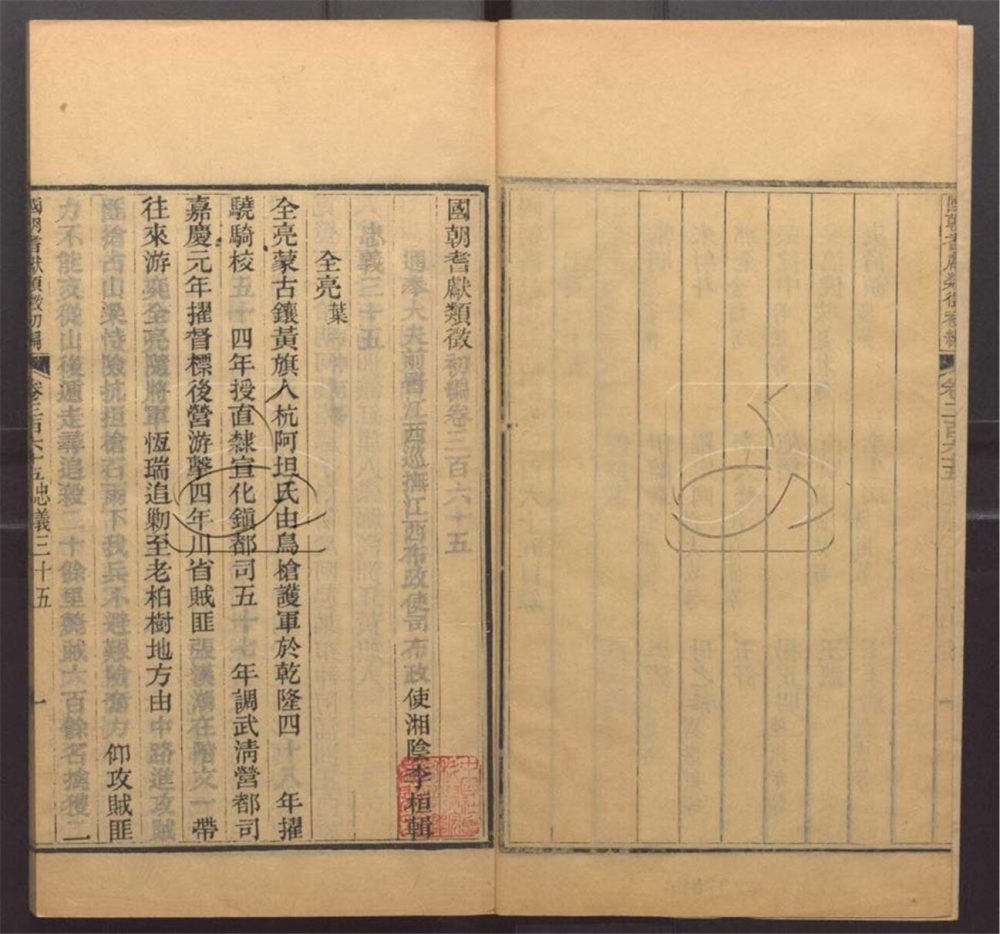 國朝耆獻類徵初編卷三百六十五
通奉大夫前署江西巡撫江西布政使司布政使湘陰李桓輯
忠義三十五
全亮葉
全亮蒙古鑲黃旗人杭阿坦氏由鳥槍護軍於乾隆四十八年擢
驍騎校五十四年授直隸宣化鎮都司五十七年調武清營都司
嘉慶元年擢督標後營游擊四年川省賊匪張漢潮在附文一帶
往來游奕全亮隨將軍恆瑞追勦至老柏樹地方由中路進攻賊
匪搶占山梁恃險抗拒槍石雨下我兵不避艱險奮力仰攻賊匪
力不能支從山後遁走尋追殺二十餘里斃賊六百餘名擒獲二
國朝耆獻類徵初編 卷三百六十五忠義三十五 一